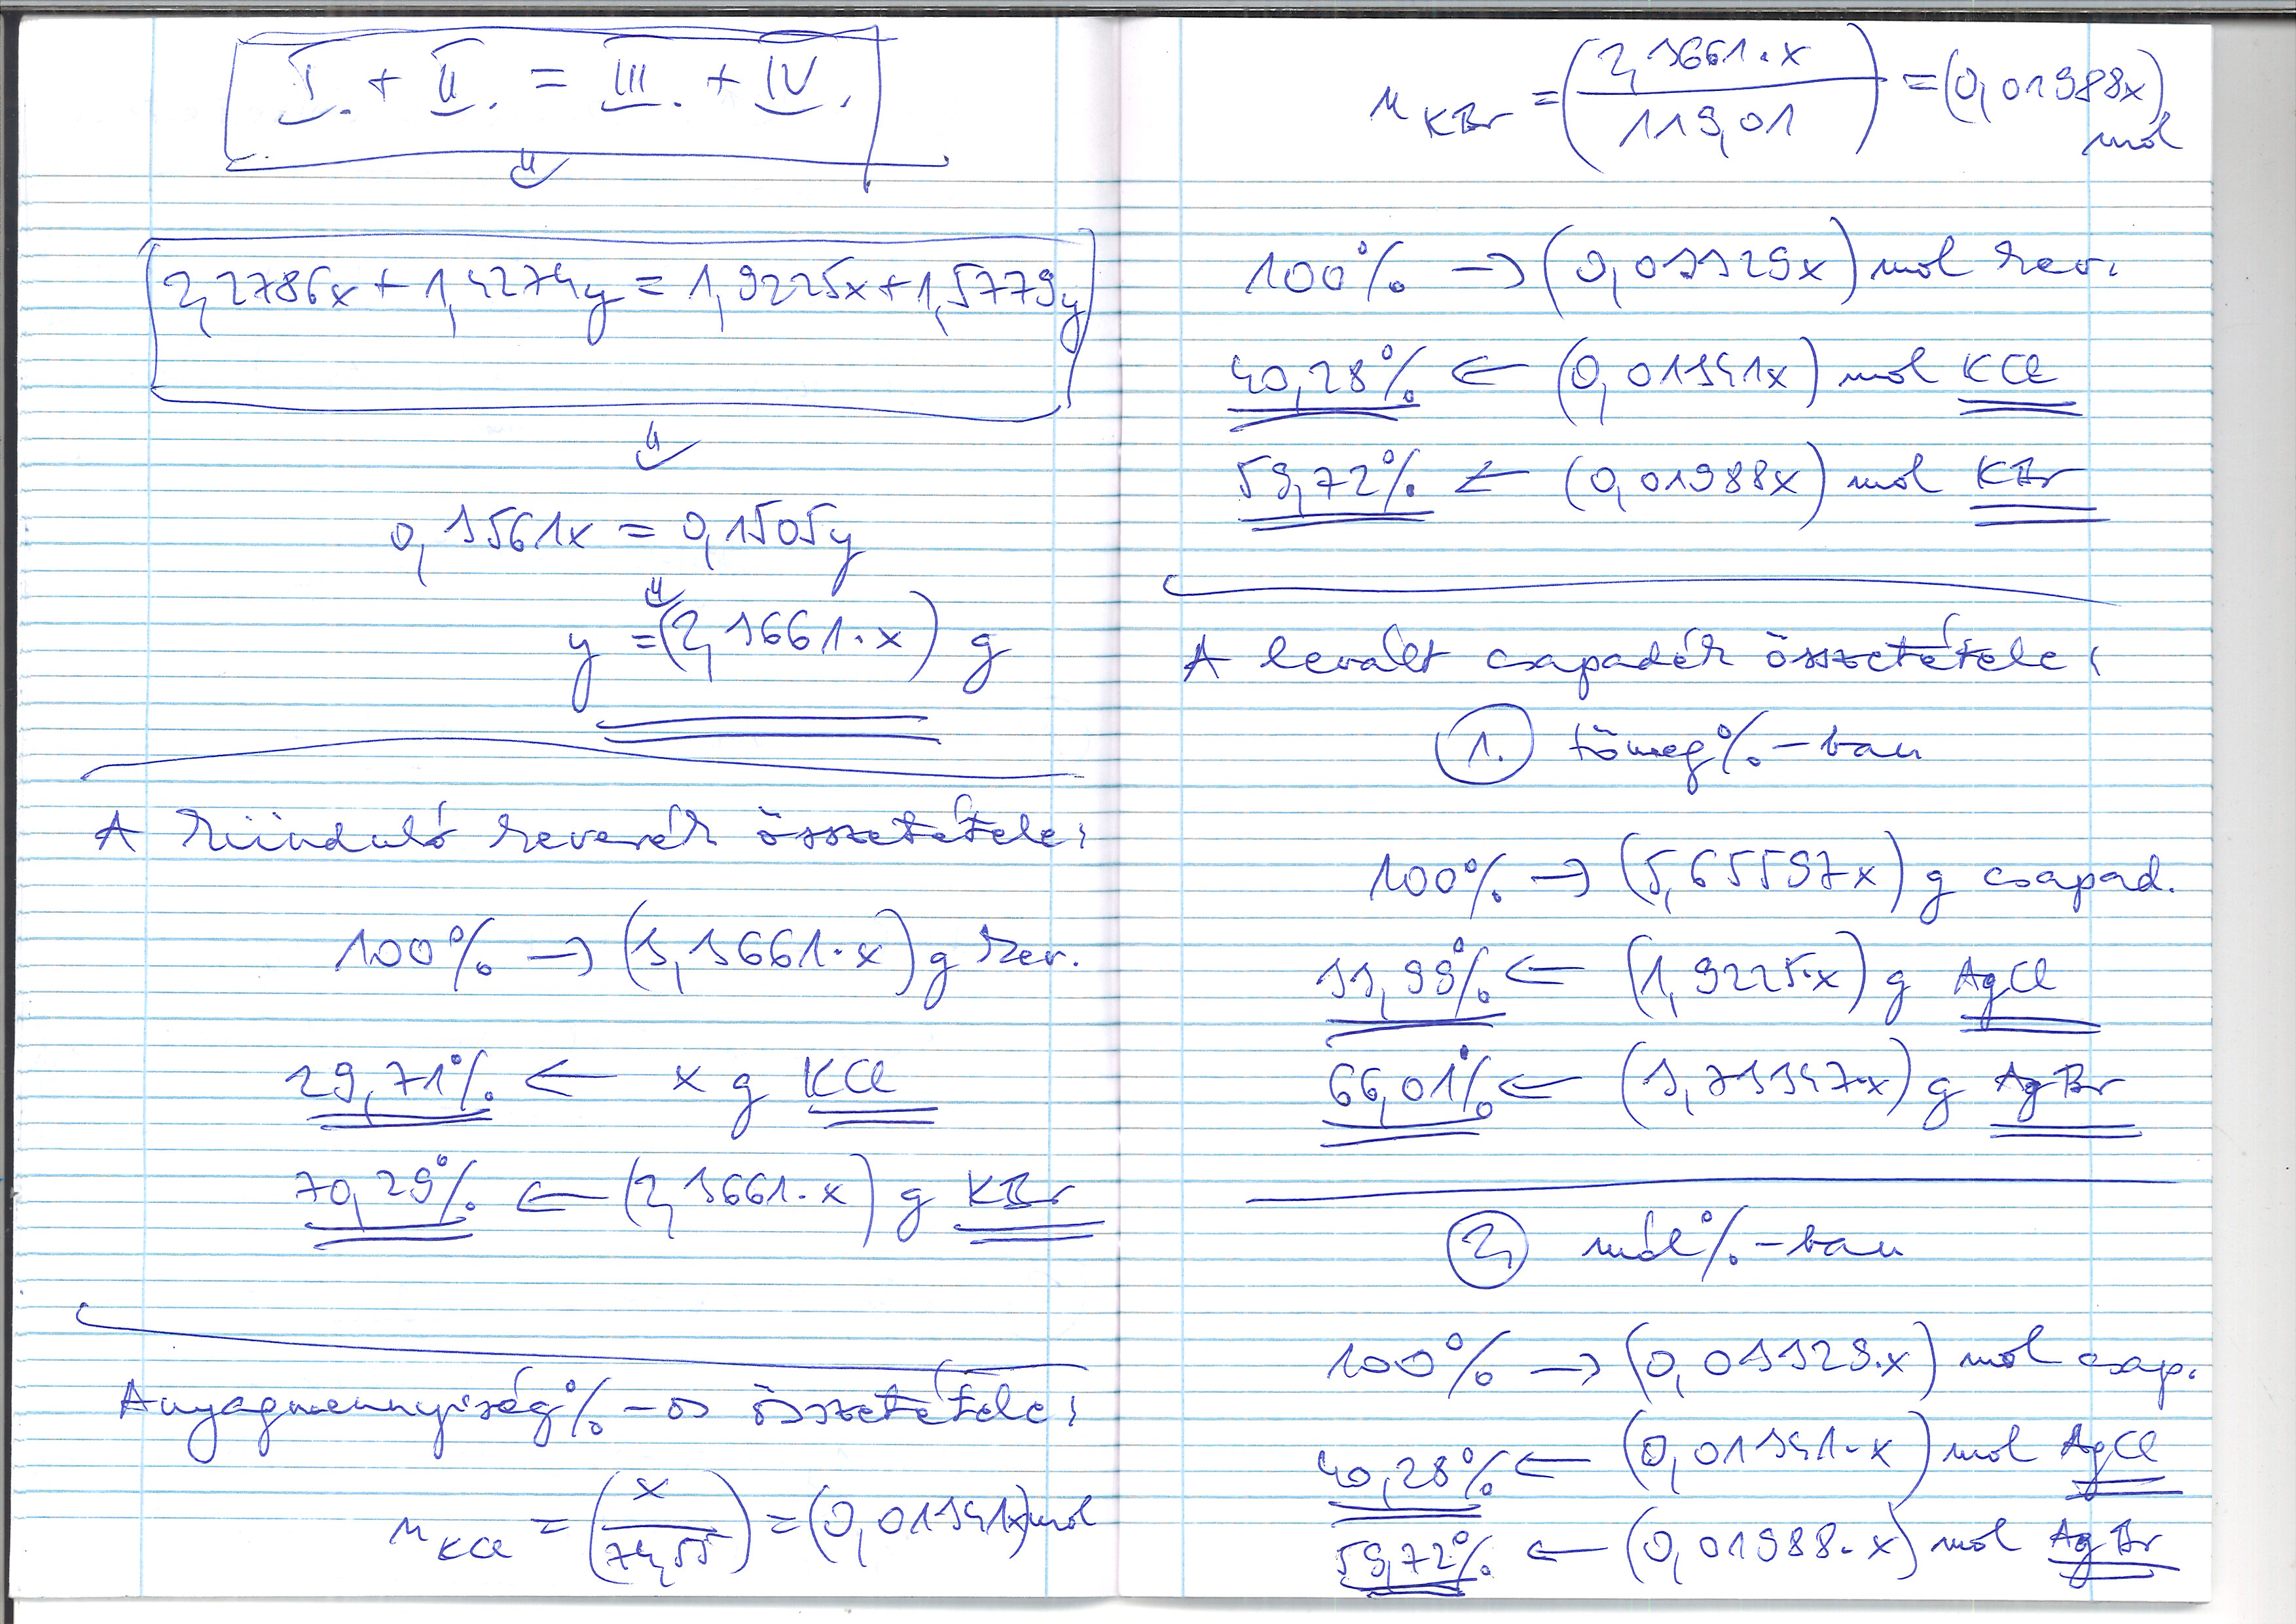 I. + II. = III. + IV.
⇓
2,2786x + 1,4274y = 1,9225x + 1,5779y
⇓
0,3561x = 0,1505y
⇓
y = (2,3661·x) g
A kiinduló keverék összetétele:
100% → (3,3661·x) g kev.
29,71% ← x g KCl
70,29% ← (2,3661·x) g KBr
Anyagmennyiség%-os összetétele:
n KCl = (x / 74,55) = (0,01341x) mol
n KBr = (2,3661·x / 119,01) = (0,01988x) mol
100% → (0,03329x) mol kev.
40,28% ← (0,01341x) mol KCl
59,72% ← (0,01988x) mol KBr
A levált csapadék összetétele:
1. tömeg%-ban
100% → (5,65597x) g csapad.
33,99% ← (1,9225·x) g AgCl
66,01% ← (3,73347·x) g AgBr
2, mól%-ban
100% → (0,03329·x) mol csap.
40,28% ← (0,01341·x) mol AgCl
59,72% ← (0,01988·x) mol AgBr